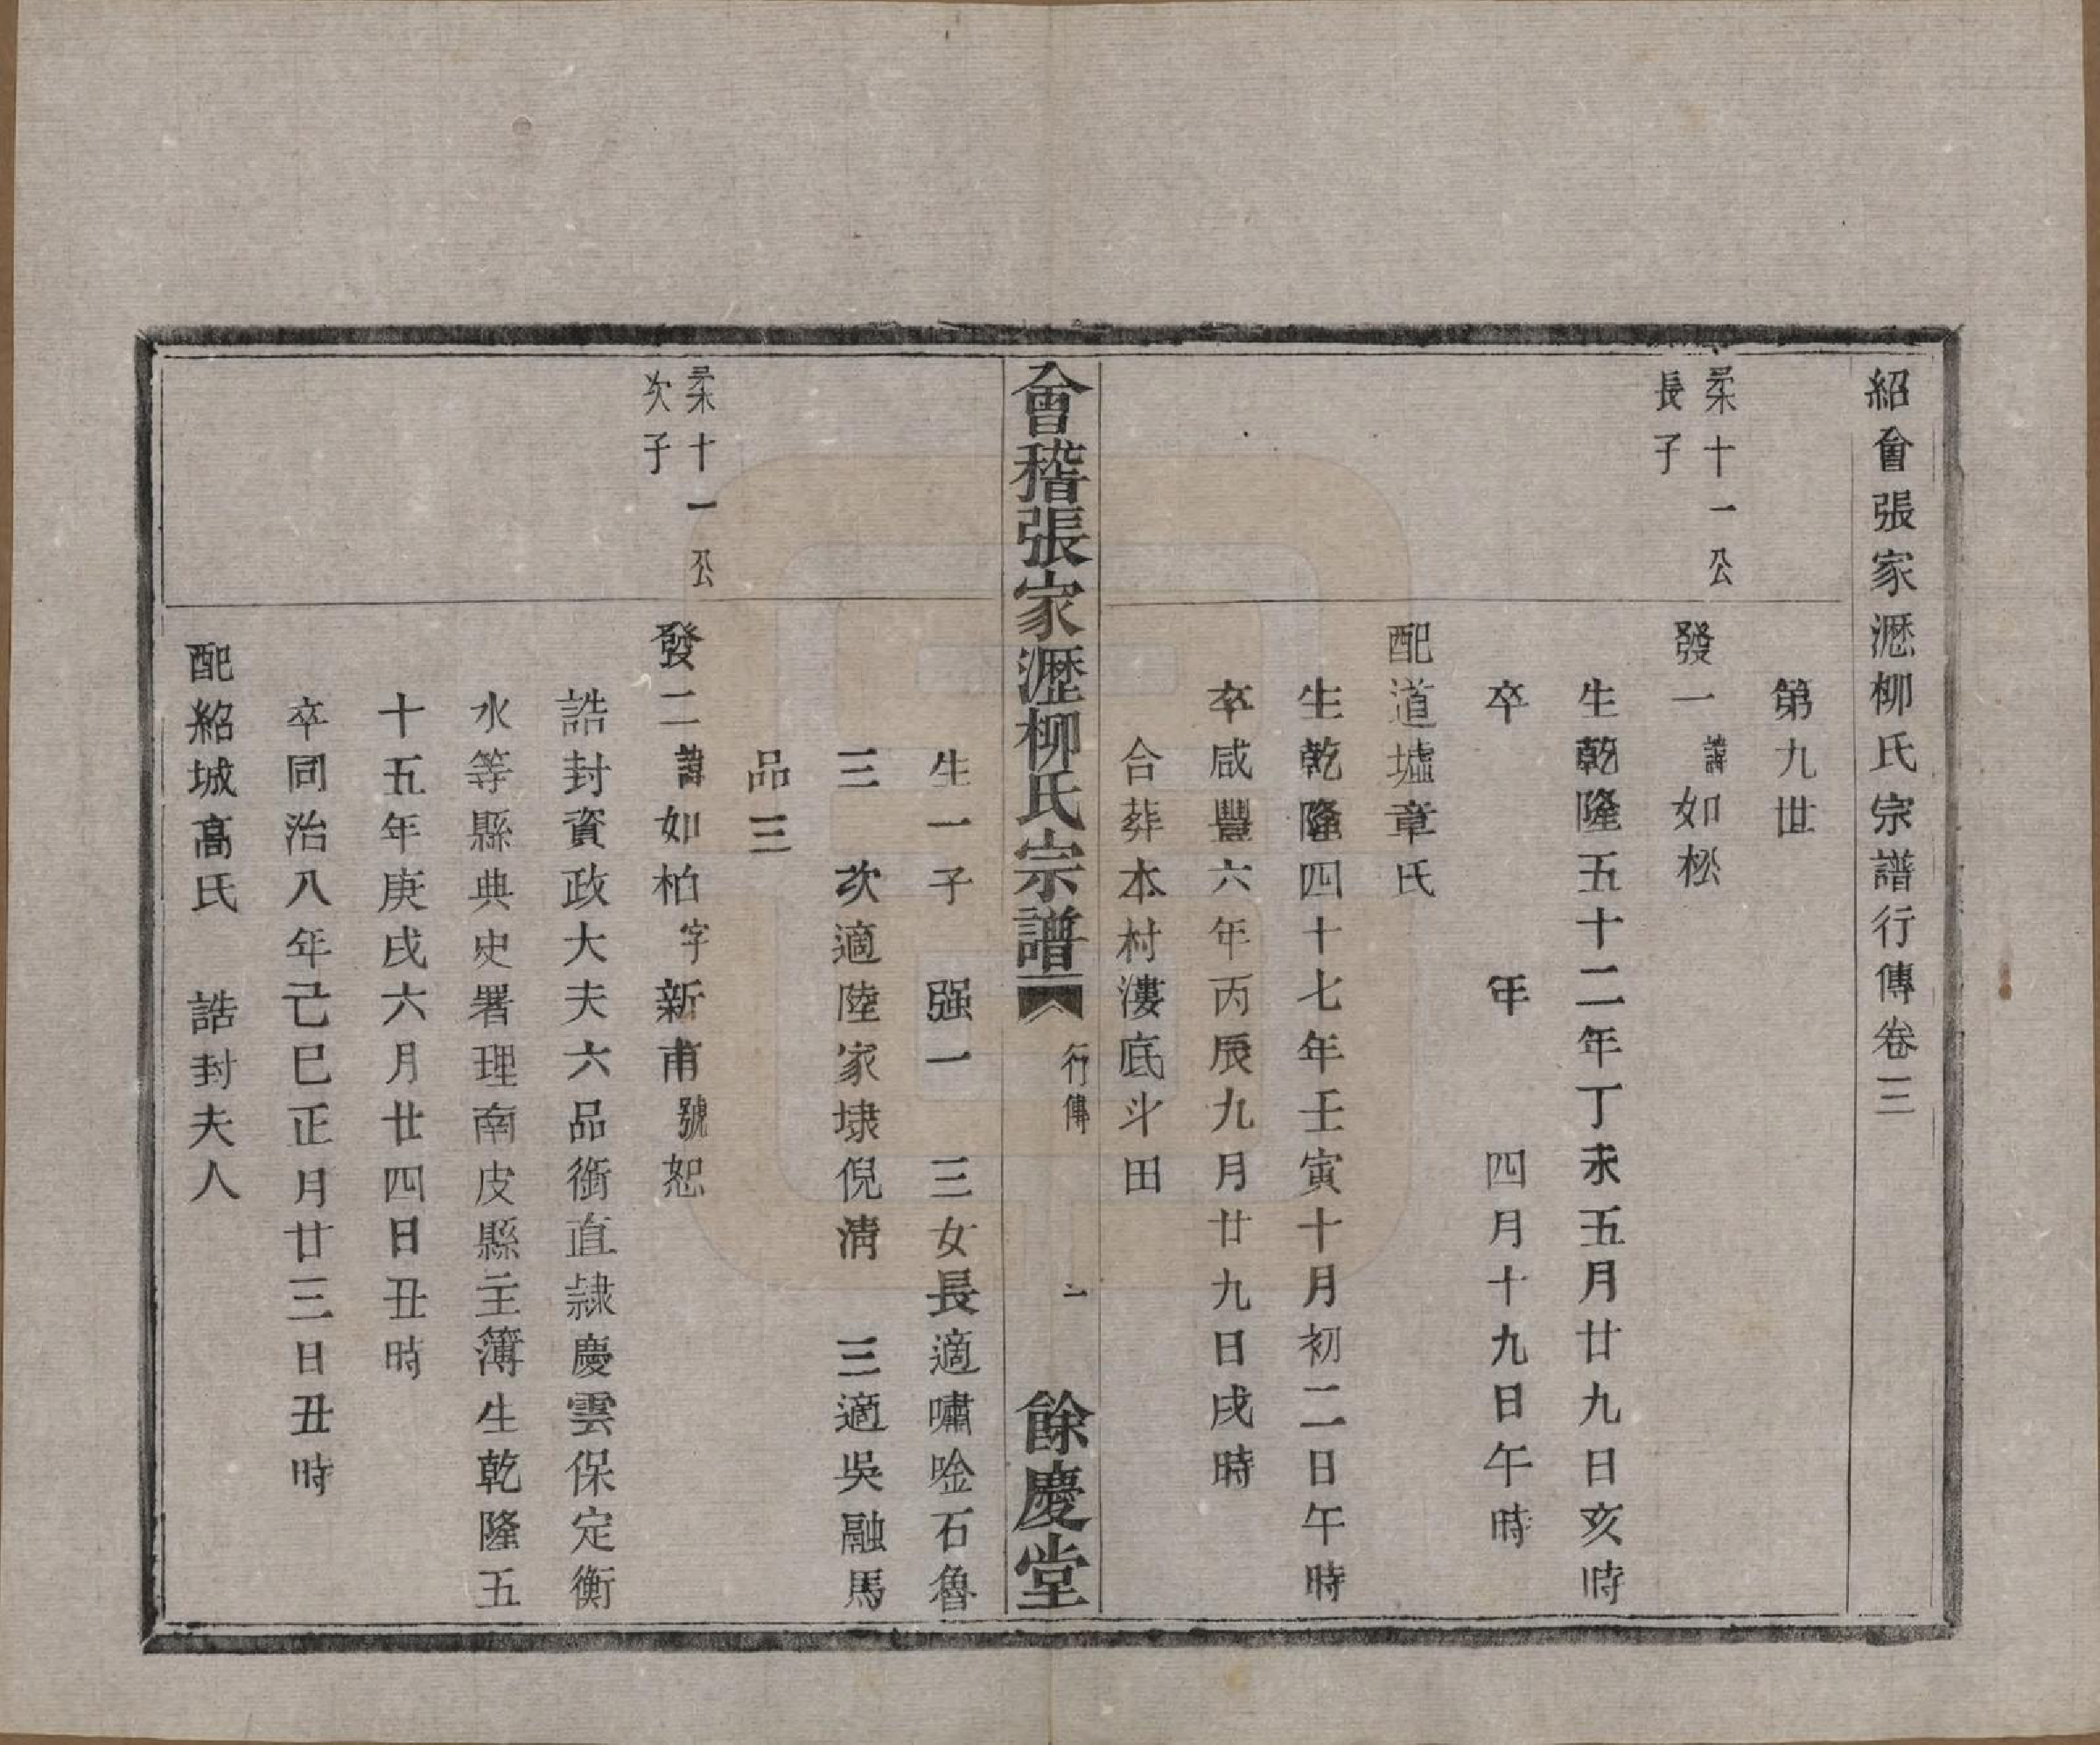 紹會張家瀝柳氏宗譜行傳卷三
第九世
柔十一公
長子
發一 諱如松
生乾隆五十二年丁未五月廿九日亥時
卒 年 四月十九日午時
配道墟章氏
生乾隆四十七年壬寅十月初二日午時
卒咸豐六年丙辰九月廿九日戌時
合葬本村漊底斗田
會稽張家瀝柳氏宗譜 行傳 一 餘慶堂
生一子 强一 三女長適嘯唫石魯
三 次適陸家埭倪淸 三適吳融馬
品三
柔十一公
次子
發二 諱如柏字新甫號恕
誥封資政大夫六品銜直隷慶雲保定衡
水等縣典史署理南皮縣主簿生乾隆五
十五年庚戌六月廿四日丑時
卒同治八年己巳正月廿三日丑時
配紹城高氏 誥封夫人